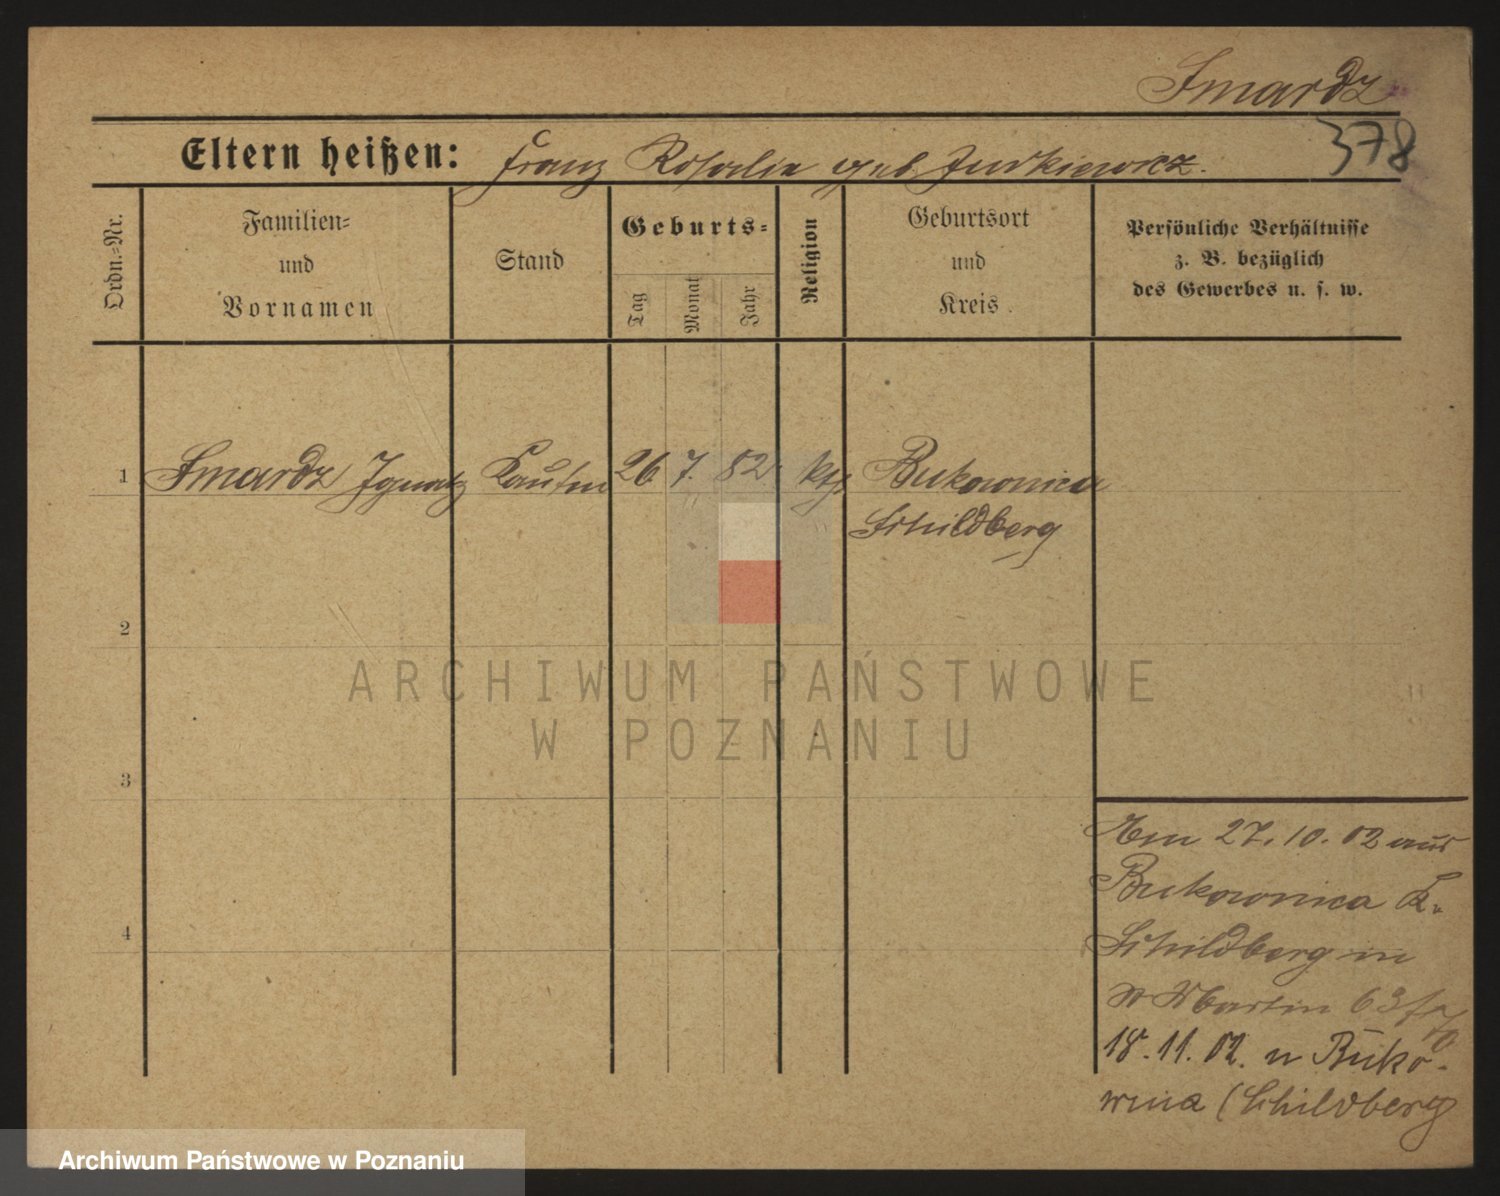 Smardz
378
Eltern heißen: Franz Rosalie geb. Jurkiewicz.
Ordn.-Nr.
Familien-
und
Vornamen
Stand
Geburts-
Tag
Monat
Jahr
Religion
Geburtsort
und
Kreis
Persönliche Verhältnisse
z. B. bezüglich
des Gewerbes u. s. w.
1 Smardz Ignatz 26 7. 82 kth Bukownica
Schildberg
2
3
4
ARCHIWUM PAŃSTWOWE
W POZNANIU
27.10.02 aus
Bukownica K.
Schildberg in
Martin 63
18.11.02. n Buko-
wina (Schildberg
Archiwum Państwowe w Poznaniu